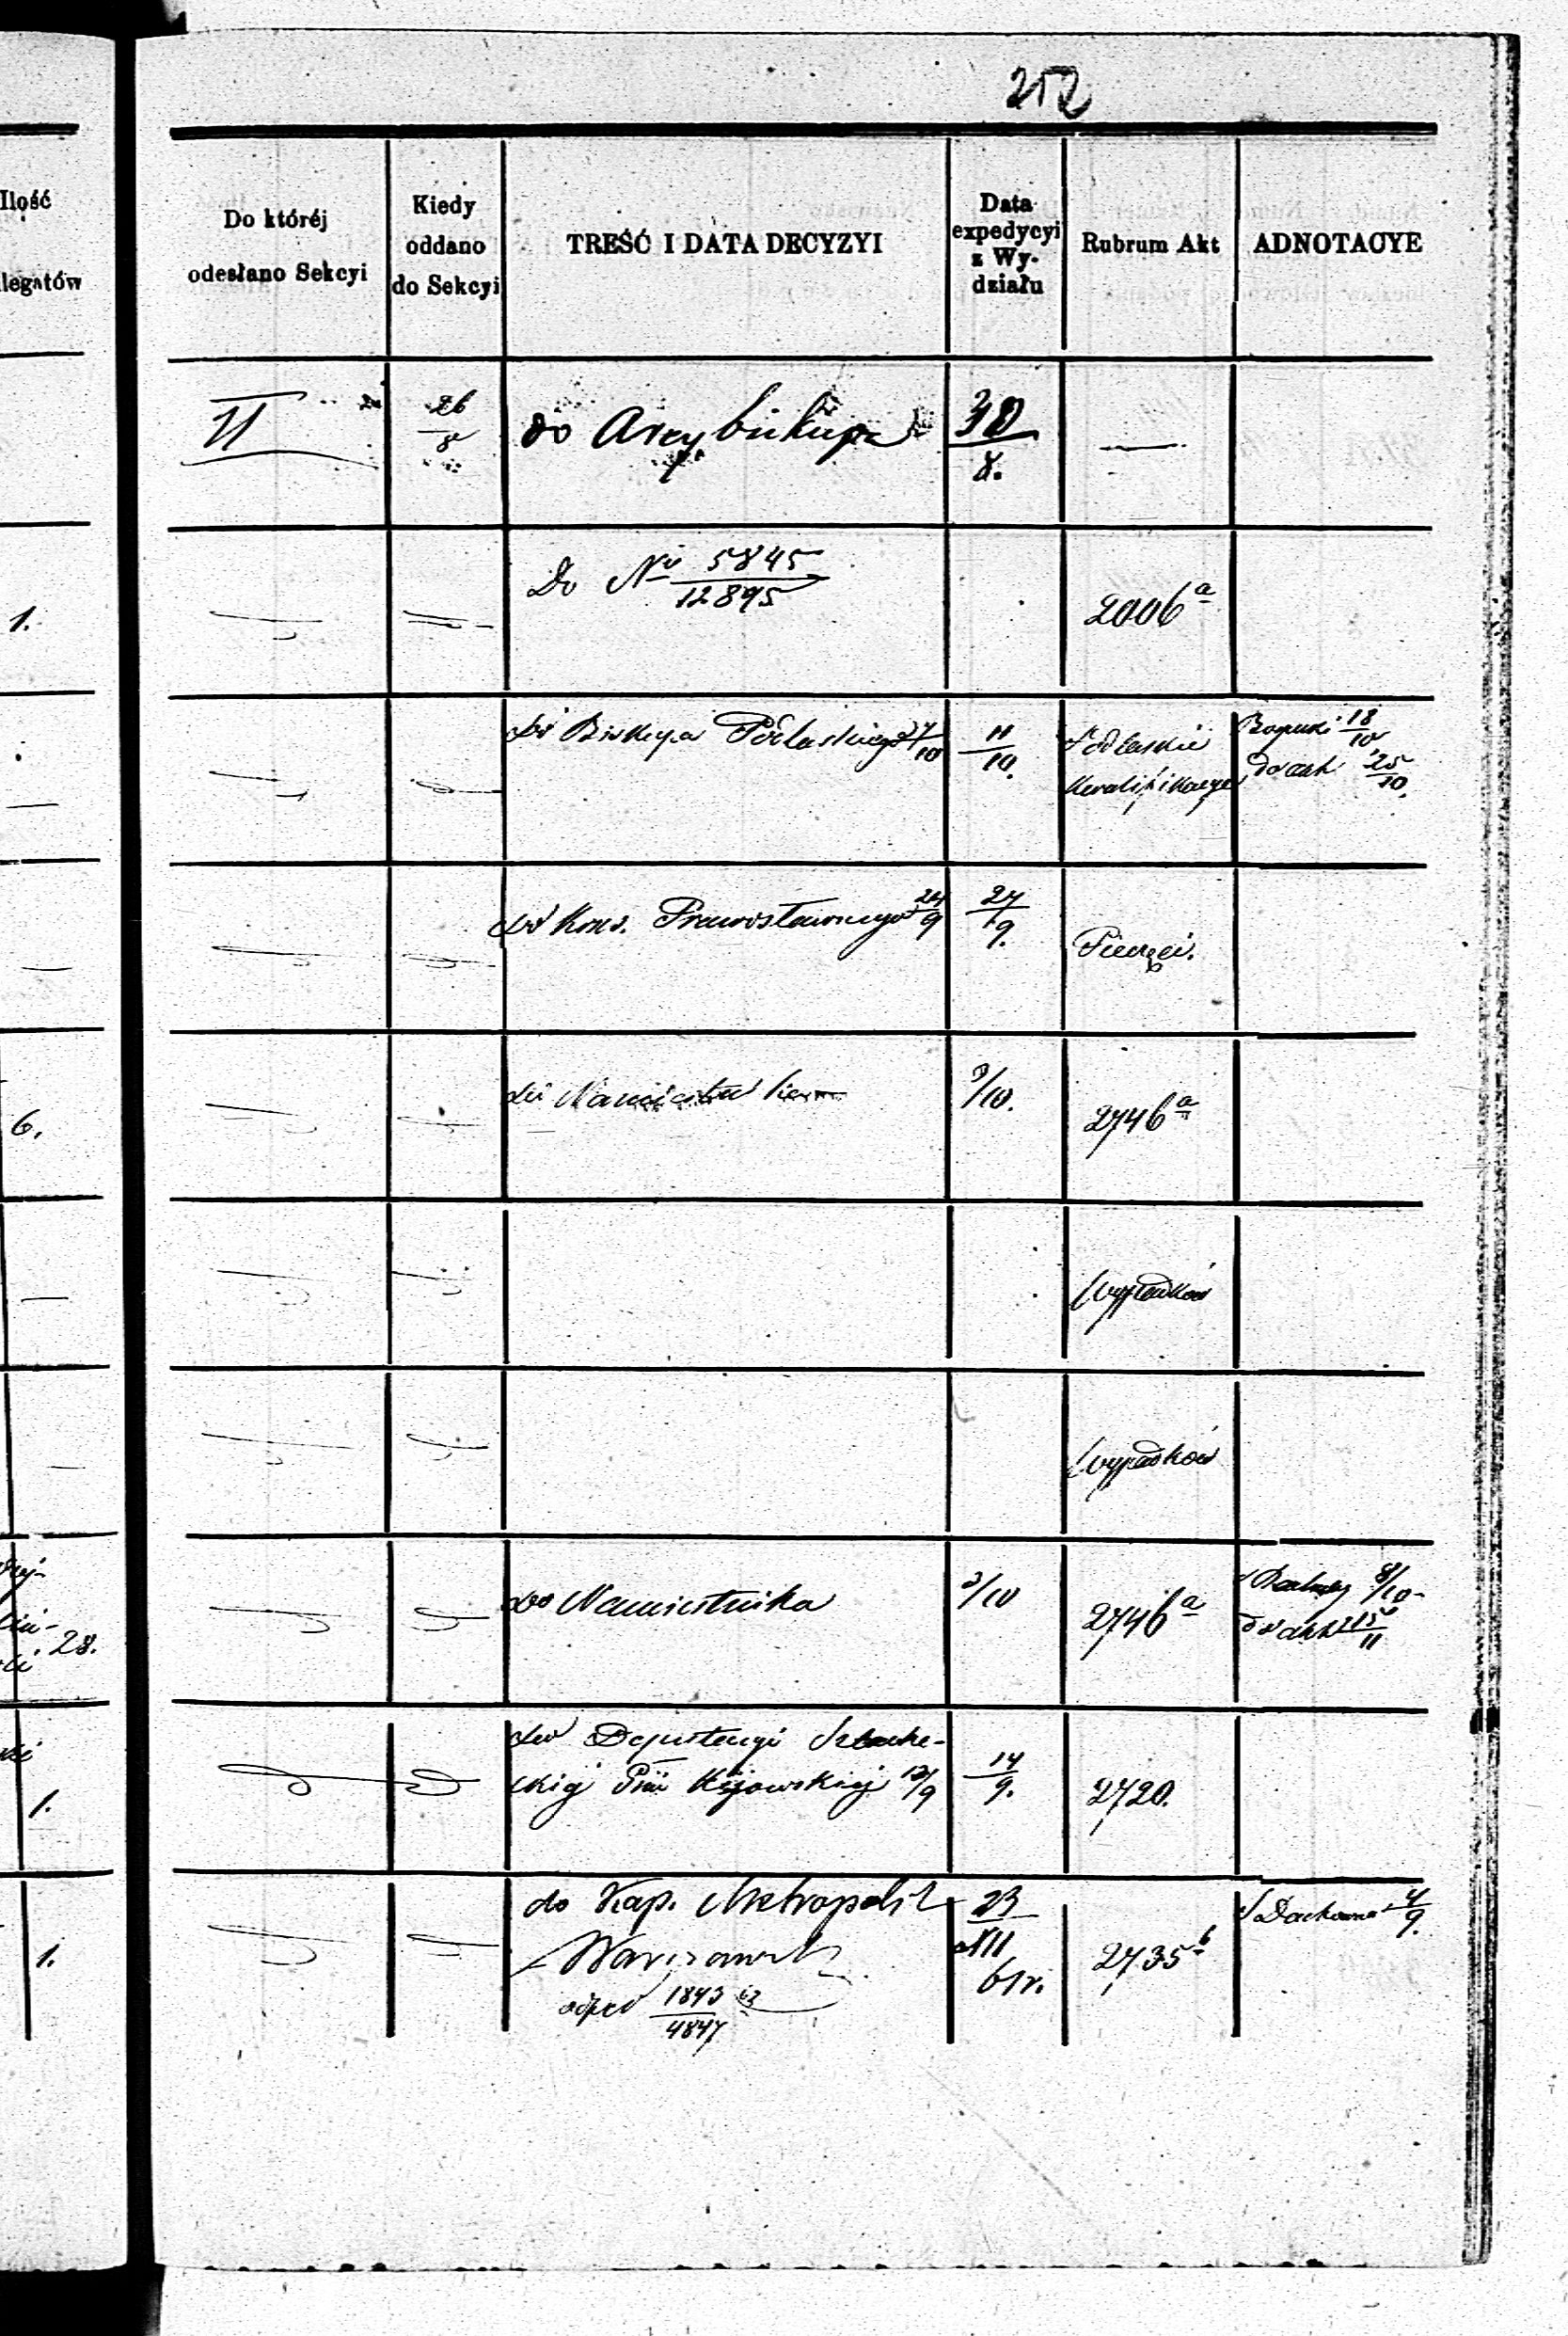 252
Ilość
legatów
Do któréj
odesłano Sekcyi
Kiedy
oddano
do Sekcyi
TREŚĆ I DATA DECYZYI
Data
expedycyi
z Wy-
działu
Rubrum Akt
ADNOTACYE
II
26
8
do Arcybiskupa
30
8.
1.
Do Nr 5845
12895
2006 a
do Biskupa Podlaskiego 7
10
11
10.
Podlaskie
18
10
do akt 25
10.
do Kons. Prawosławnego 24
9
27
9.
Pieczęci.
6.
do Namiestnika
9/10.
2746 a
wypadków
wypadków
28.
do Namiestnika
3/10
2746 a
8/10
do akt 15
11
1.
do Deputacyi Szlache-
ckiej Gub. Kijowskiej 12/9
14
9.
2720.
1.
do Kap. Metropolit
Warszawsk
odpow 1843
4847
23
XII
61 r.
2735 b
4
9.